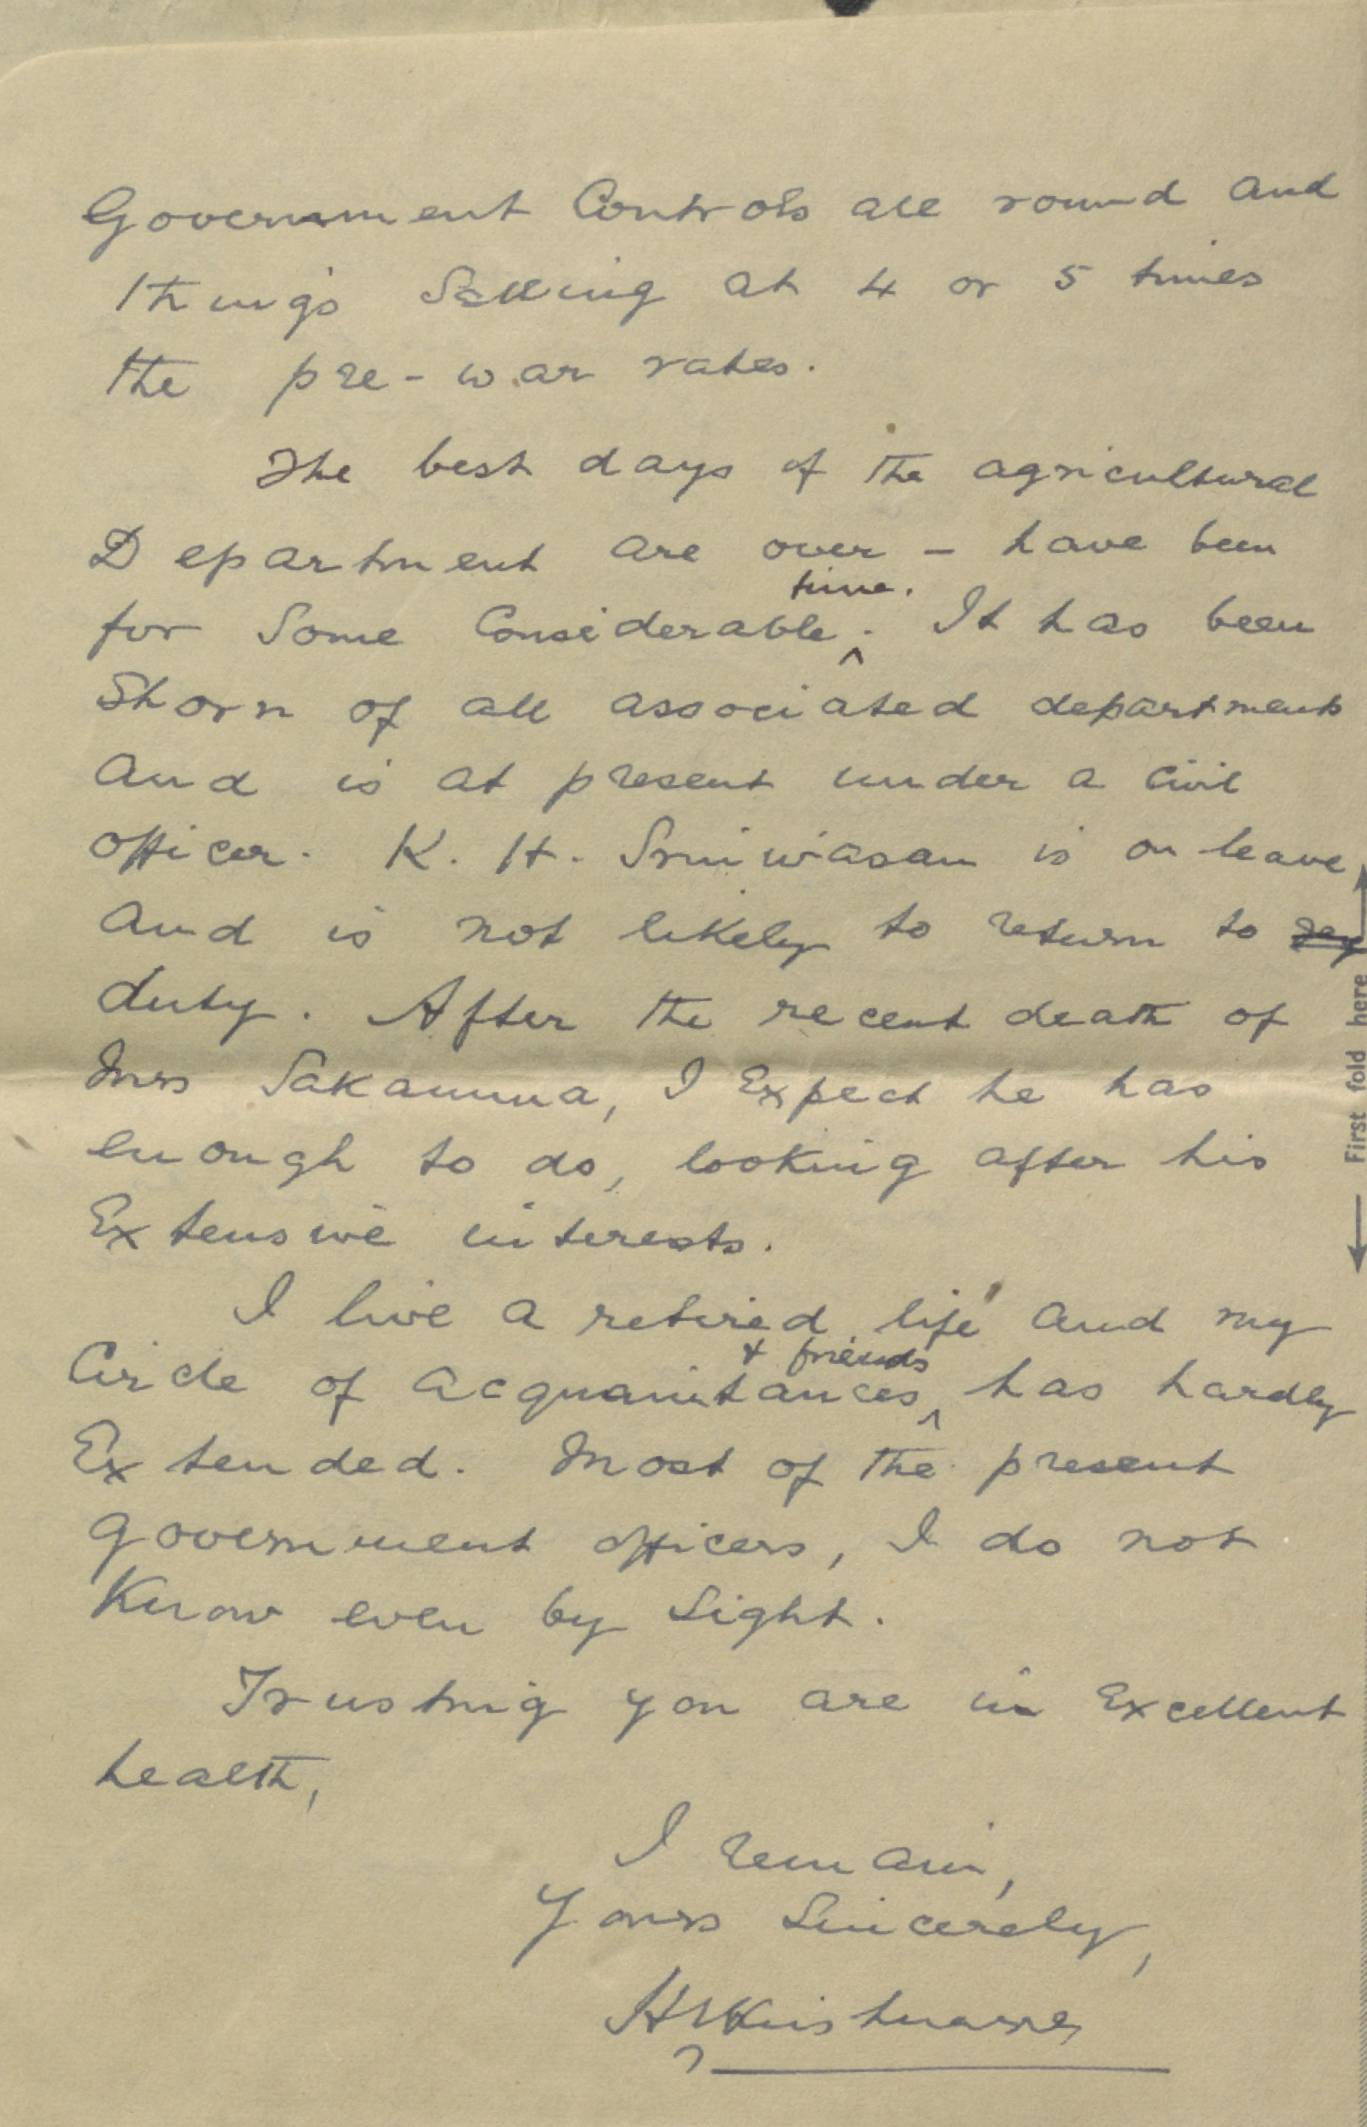 Government Controls all round and
things Selling at 4 or 5 times
the pre-war rates.
The best days of the agricultural
Department are over - have been
time.
for Some Considerable ^. It has been
Shorn of all associated departments
and is at present under a civil
officer. K. H. Sriniwasan is on leave
and is not likely to return to
duty. After the recent death of
Mrs Sakamma, I Expect he has
enough to do, looking after his
Extensive interests.
I live a retired life and my
& friends
Circle of acquaintances ^ has hardly
Extended. Most of the present
government officers, I do not
Know even by Sight.
Trusting you are in Excellent
health,
I remain,
Yours Sincerely,
First fold here